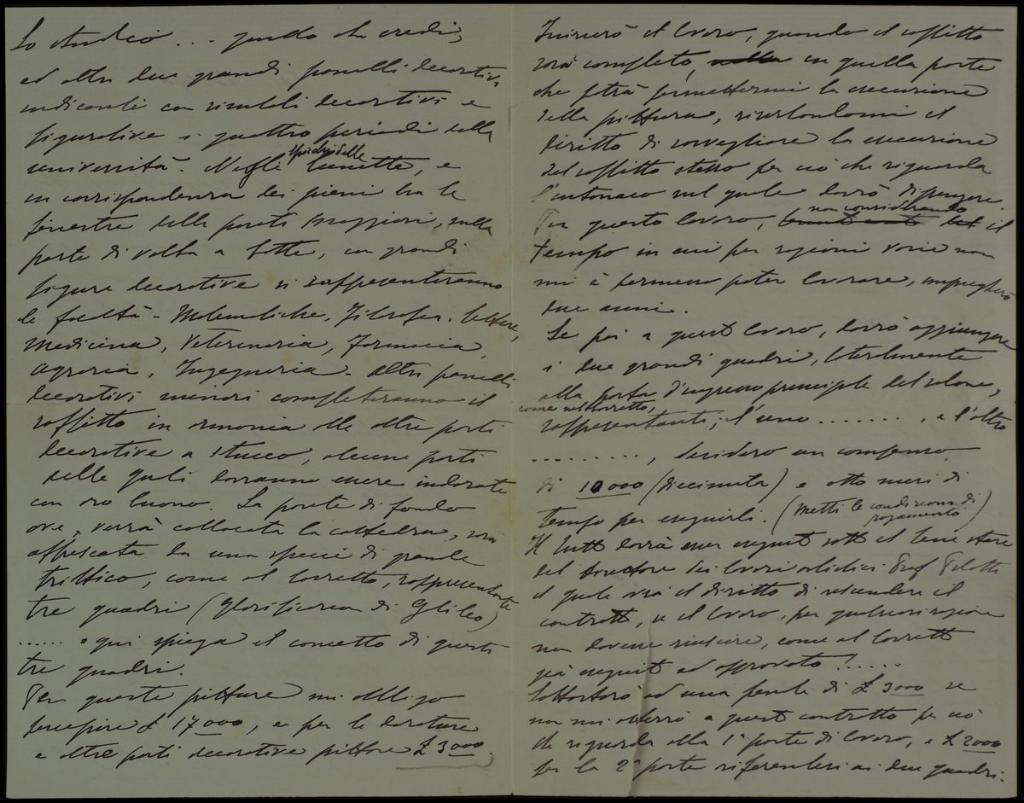 Lo studio ... quando che credi,
ed altri due grandi pannelli decorativi
indicanti con simboli decorativi e
figurative i quattro periodi della
università. Negli spicchi delle lunette, e
in corrispondenza dei pieni tra le
finestre della parete maggiori, nella
parte di volta a botte, in grandi
figure decorative si rappresenteranno
le facoltà - Matematiche, Filosofia, Lettere,
Medicina, Veterinaria, Farmacia,
Agraria, Ingegneria. Altri pannelli
decorativi minori completeranno il
soffitto in armonia alle altre parti
decorative a stucco, alcune parti
delle quali dovranno essere indorate
con oro buono. La parete di fondo
ove, verrà collocata la cattedra, sarà
affrescata da una specie di grande
trittico, come al bozzetto, rappresentante
tre quadri (Glorificazione di Galileo)
...... e qui spiega il concetto di questi
tre quadri.
Per queste pitture mi obbligo
percepire £ 17000, e per le dorature
e altre parti decorative pittore £ 3000.
Inizierò il lavoro, quando il soffitto
sarà completo, in quella parte
che potrà permettermi la esecuzione
della pittura, riserbandomi il
diritto di sorvegliare la esecuzione
del soffitto stesso per ciò che riguarda
l'intonaco sul quale dovrò dipingere.
Per questo lavoro, non considerando il
tempo in cui per ragioni varie non
mi è permesso poter lavorare, impiegherò
due anni.
Se poi a questo lavoro, dovrò aggiungere
i due grandi quadri, lateralmente
alla porta d'ingresso principale del salone,
come nel bozzetto,
rappresentanti; l'uno ........ e l'altro
.........., desidero un compenso
di 10000 (diecimila) e otto mesi di
tempo per eseguirli. (Metti le condizioni di
pagamento)
Il tutto dovrà esser eseguito sotto il bene stare
del Direttore dei lavori artistici Prof
il quale avrà il diritto di rescindere il
contratto, se il lavoro, per qualsiasi ragione
non dovesse riuscire, come al bozzetto
già eseguito ed approvato!.....
Sottostarò ad una penale di £ 3000 se
non mi atterrò a questo contratto per ciò
che riguarda alla 1ª parte di lavoro, e £ 2000
per la 2ª parte riferentesi ai due quadri.